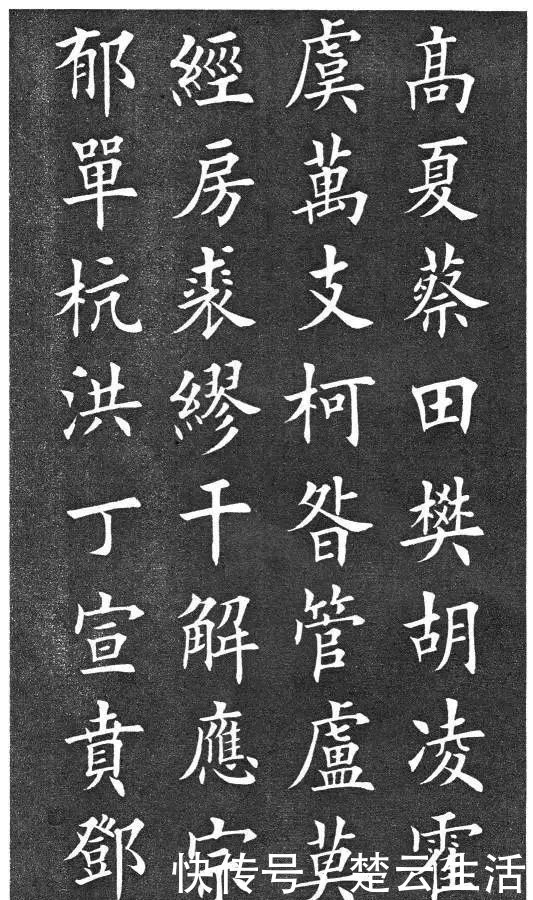 髙夏蔡田樊胡凌霍
虞萬支柯昝管盧莫
經房裘繆干解應宗
郁單杭洪丁宣賁鄧
快传号 楚云生活